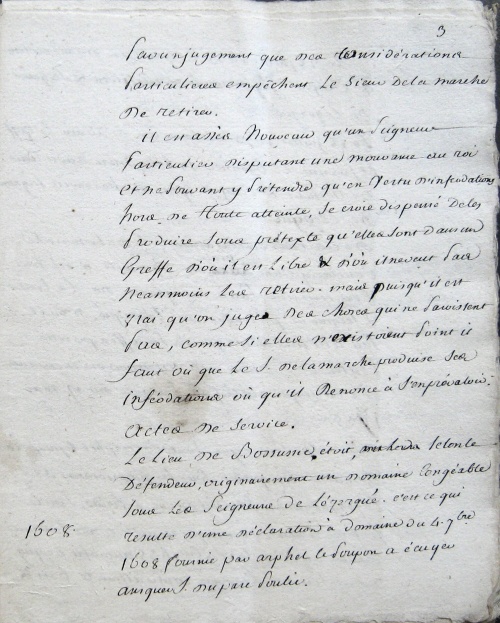 3
pas un jugement que des considérations
particulieres empêchent le Sieur de la marche
de retirer.
il est assés nouveau qu'un seigneur
particulier disputant une mouvance au roi
et ne pouvant y prétendre qu'en vertu d'inféodations
hors de toute atteinte, se croie dispensé de les
produire sous prétexte qu'elles sont dans un
Greffe d'où il est libre & d'où il ne veut pas
neanmoins les retirer. mais puisqu'il est
vrai qu'on juge des choses qui ne paroissent
pas, comme si elles n'existoient point il
faut où que le S. de la marche produise ses
inféodations où qu'il renonce à s'en prévaloir.
actes de service.
Le Lieu de étoit selon le
Défendeur, originairement un domaine congéable
sous les Seigneurs de c'est ce qui
resulte d'une déclaration à domaine du 4. 7bre
1608.
1608 fournie par le à écuyer